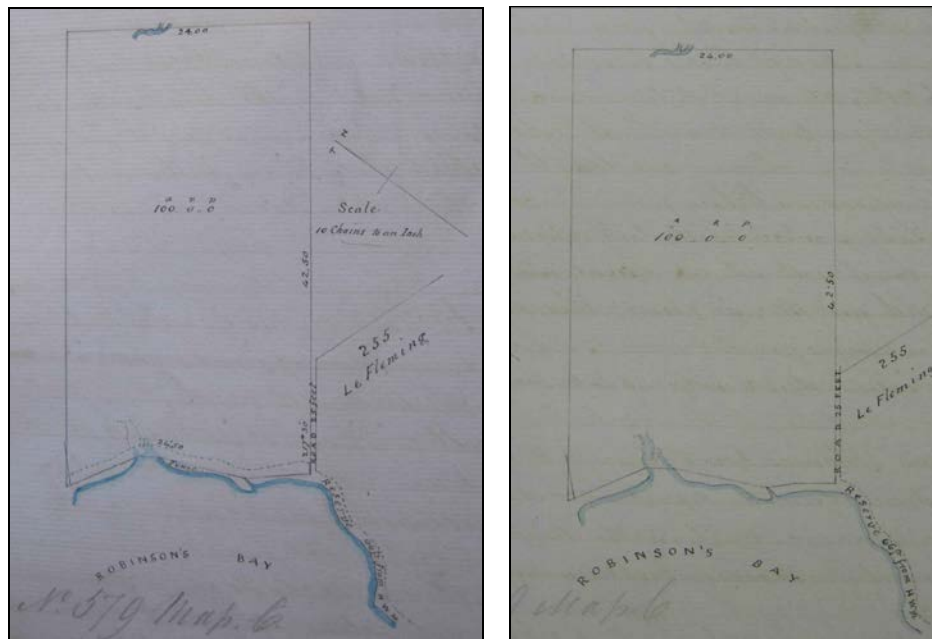 24.00
N
A R P
100. 0. 0
Scale
10 Chains to an Inch
42.50
255
Le Fleming
217°30
ROAD 25 FEET
24.50
Fence
Reserve 66ft from HWM
ROBINSON'S BAY
No 579 Map. 6
24.00
A R P
100 0 0
42.50
255
Le Fleming
ROAD 25 FEET
Reserve 66ft from HWM
ROBINSON'S BAY
Map 6